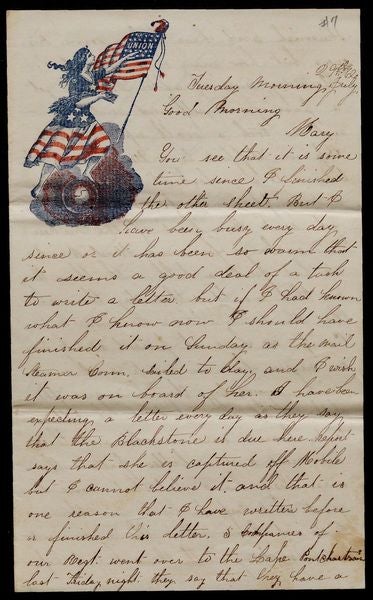 #7
UNION
Tuesday Morning, July
Good Morning
Mary
You see that it is some
time since I finished
the other sheet. But I
have been busy every day
since or it has been so warm that
it seems a good deal of a task
to write a letter but if I had known
what I know now I should have
finished it on Sunday as the mail
steamer Conn. sailed to day and I wish
it was on board of her. I have been
expecting a letter every day as they say
that the Blackstone is due here. Report
says that she is captured off Mobile
but I cannot believe it. and that is
one reason that I have written before
or finished this letter. 5 Companies of
our Regt. went over to the Lake Pontchartrain
last Friday night. they say that they have a